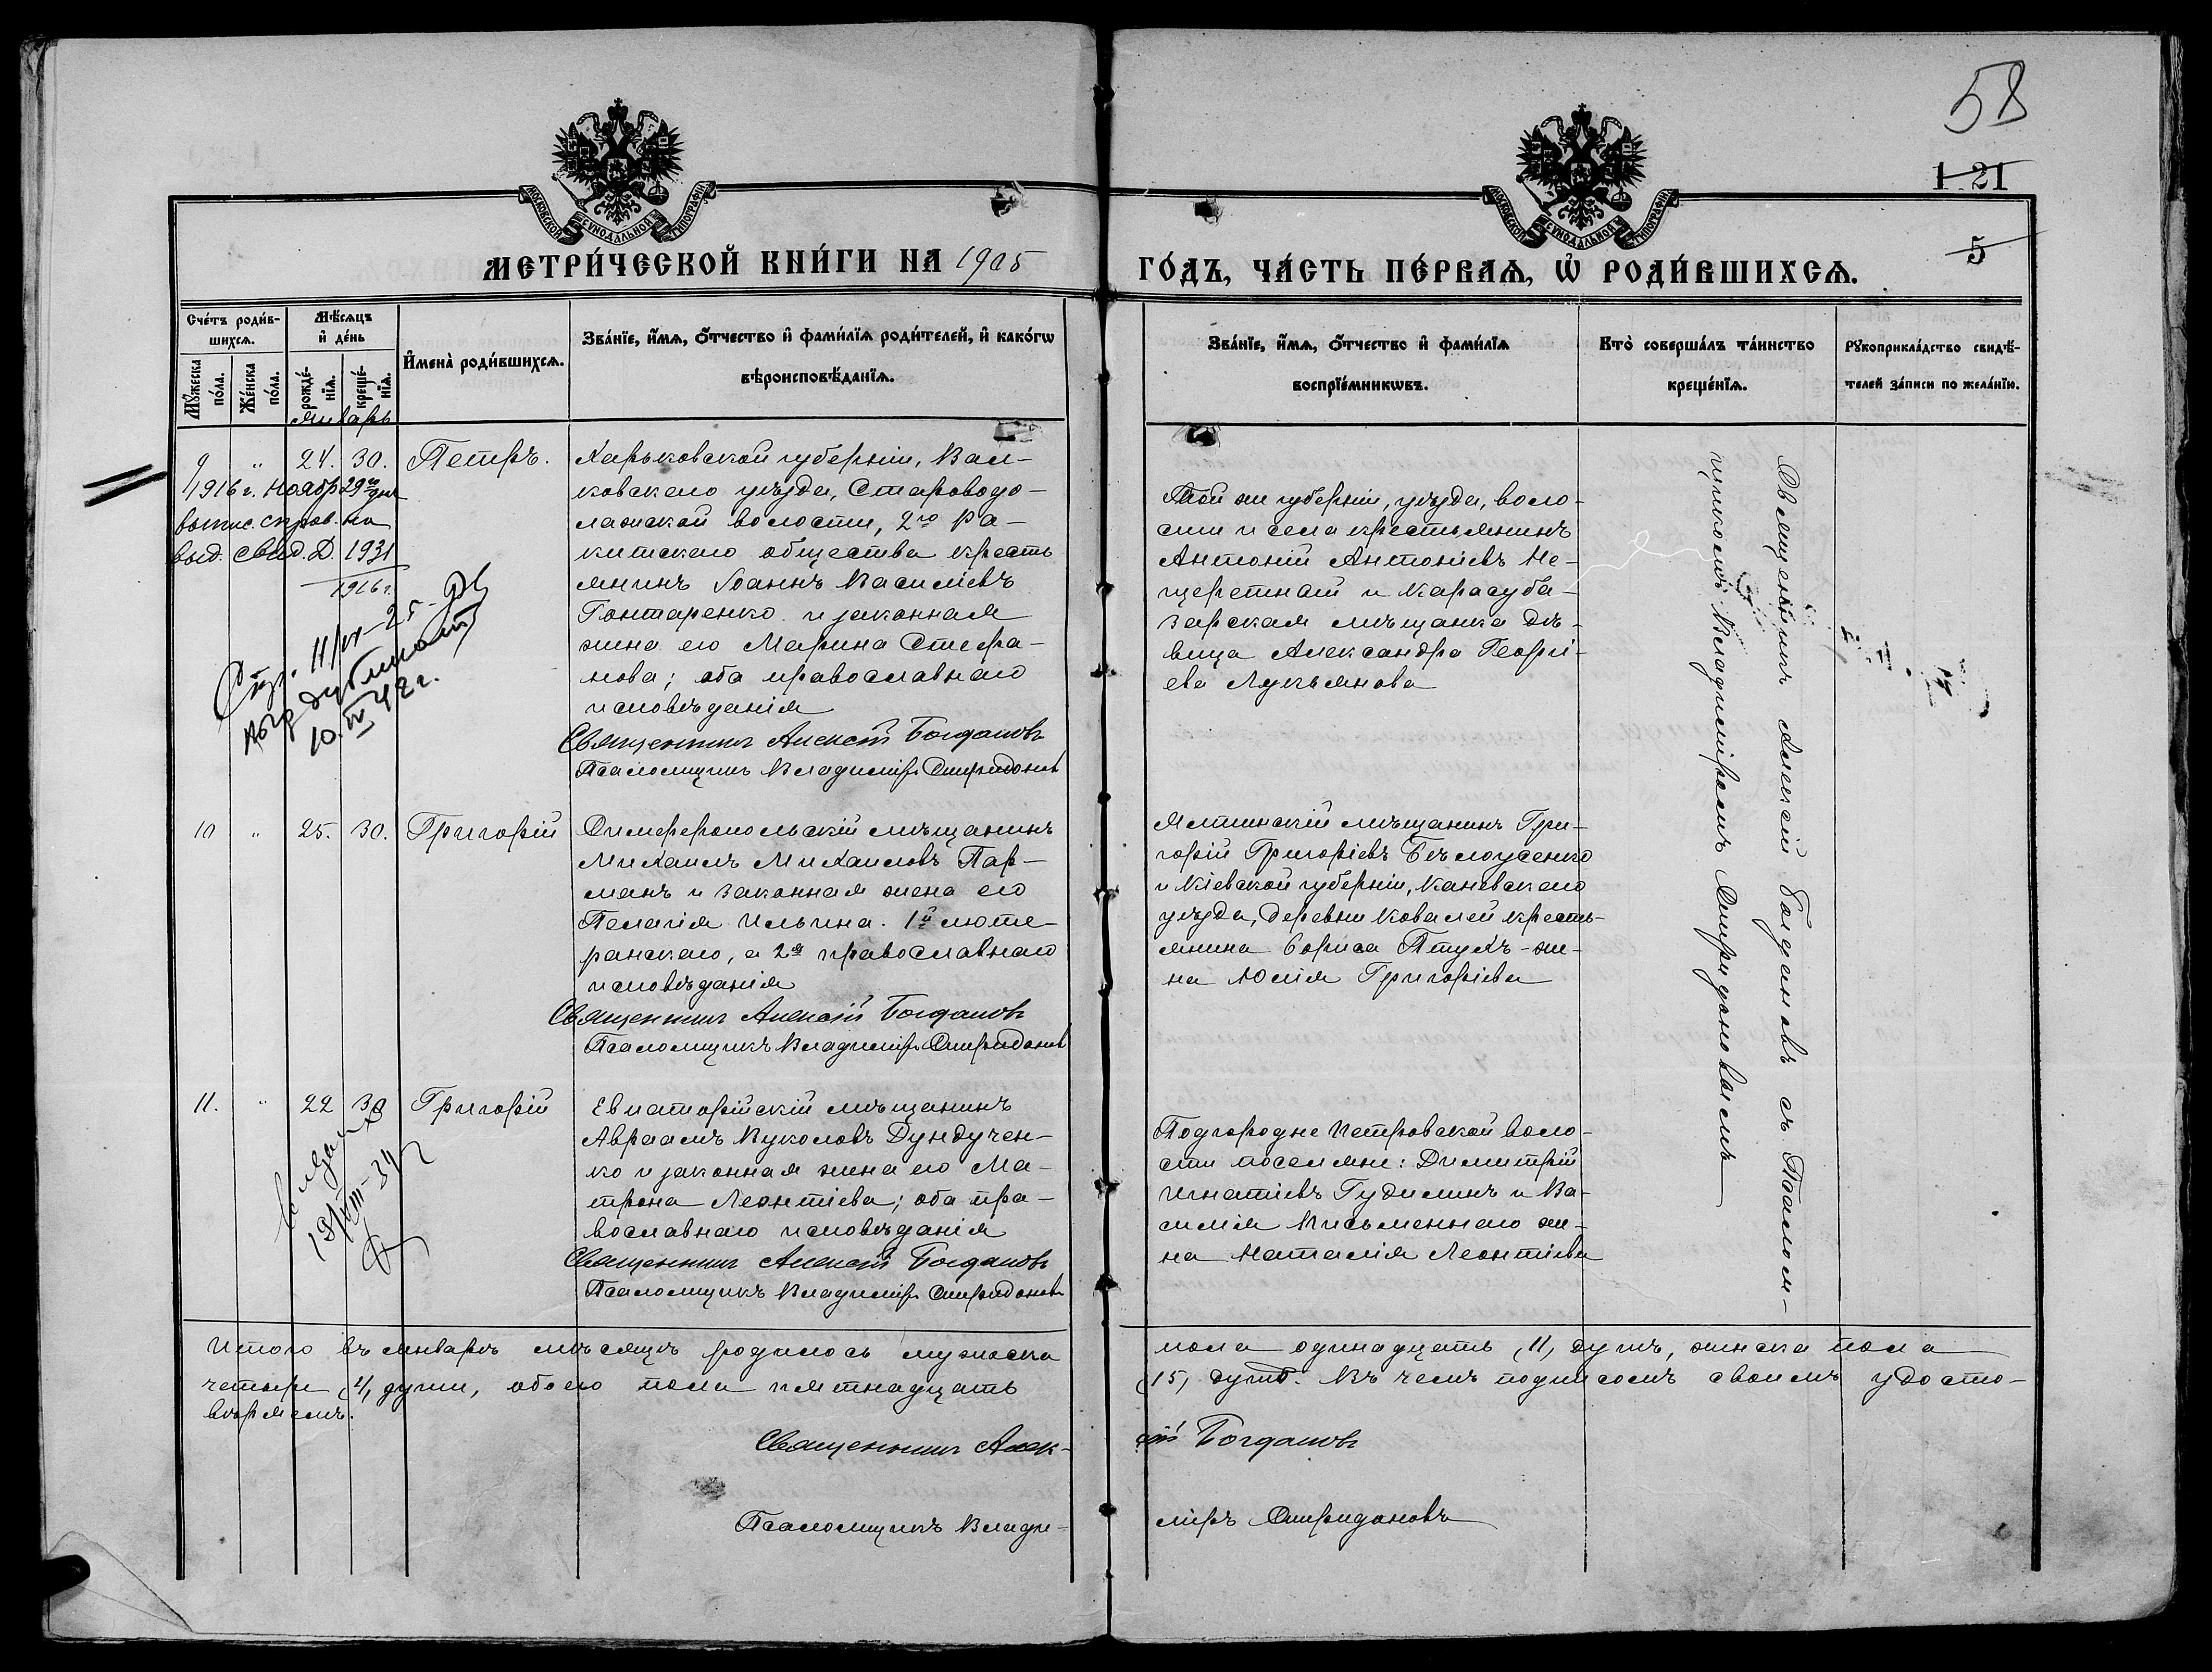 58
1 21
5
МОСКОВСКОЙ СѴНОДАЛЬНОЙ ТИПОГРАФІИ
МОСКОВСКОЙ СѴНОДАЛЬНОЙ ТИПОГРАФІИ
МЕТРИ́ЧЕСКОЙ КНИ́ГИ НА 1905 ГО́ДЪ, ЧА́СТЬ ПЕ́РВАѦ, Ѡ҆ РОДИ́ВШИХСѦ.
Сче́тъ роди́в-
шихсѧ.
Мꙋ́жеска по́ла.
Же́нска по́ла.
Мѣ́сѧцъ
и҆ де́нь
рожде́-
нїѧ.
креще́-
нїѧ.
Январь
И҆мена̀ роди́вшихсѧ.
Зва́нїе, и҆́мѧ, ѻ҆́тчество и҆ фами́лїѧ роди́телей, и҆ како́гѡ
вѣроисповѣ́данїѧ.
Зва́нїе, и҆́мѧ, ѻ҆́тчество и҆ фами́лїѧ
воспрїе́мникѡвъ.
Кто̀ соверша́лъ та́инство
креще́нїѧ.
Рꙋкоприкла́дство свидѣ́-
телей за́писи по жела́нїю.
9 " 24. 30. Петръ.
1916 г. Ноябр 29го дня
выпис. справ. на
выд. свид. Д. 1931
1916 г.
Спр. 11/VI-25-
выд дубликат
10.IV 42 г.
Харьковской губерніи, Вал-
ковскаго уѣзда, Староводо-
лажской волости, 2го Ра-
китскаго общества кресть
янинъ Іоаннъ Василіевъ
Гонтаренко и законная
жена его Марина Стефа-
нова; оба православнаго
исповѣданія
Священникъ Алексій Богдановъ
Псаломщикъ Владиміръ Спиридоновъ
Той же губерніи, уѣзда, воло-
сти и села крестьянинъ
Антоній Антоніевъ Не-
щеретній и Карасуба-
зарская мѣщанка дѣ-
вица Александра Георгі-
ева Лукьянова
Священникъ Алексій Богдановъ съ Псалом-
щикомъ Владиміромъ Спиридоновымъ
10 " 25. 30. Григорій
Симферопольскій мѣщанинъ
Михаилъ Михаиловъ Пар-
манъ и законная жена его
Пелагія Ильина. 1й люте-
ранскаго, а 2я православнаго
исповѣданія
Священникъ Алексій Богдановъ
Псаломщикъ Владиміръ Спиридоновъ
Ялтинскій мѣщанинъ Гри-
горій Григоріевъ Бѣлоусенко
и Кіевской губерніи, Каневскаго
уѣзда, деревни Ковалей кресть-
янина Бориса Птухъ - же-
на Юлія Григоріева
11. " 22 30 Григорій
19/VIII-34
Евпаторійскій мѣщанинъ
Авраамъ Вуколовъ Дундучен-
ко и законная жена его Ма-
трона Леонтіева; оба пра-
вославнаго исповѣданія
Священникъ Алексій Богдановъ
Псаломщикъ Владиміръ Спиридоновъ
Подгородне Петровской воло-
сти поселяне: Димитрій
Игнатіевъ Гудилинъ и Ва-
силія Письменнаго же-
на Наталія Леонтіева
Итого въ январѣ мѣсяцѣ родилось мужеска пола одинадцать (11) душъ, женска пола
четыре (4) души, обоего пола пятнадцать (15) душъ. Въ чемъ подписомъ своимъ удосто-
вѣряемъ.
Священникъ Алек-сій Богдановъ
Псаломщикъ Влади-міръ Спиридоновъ